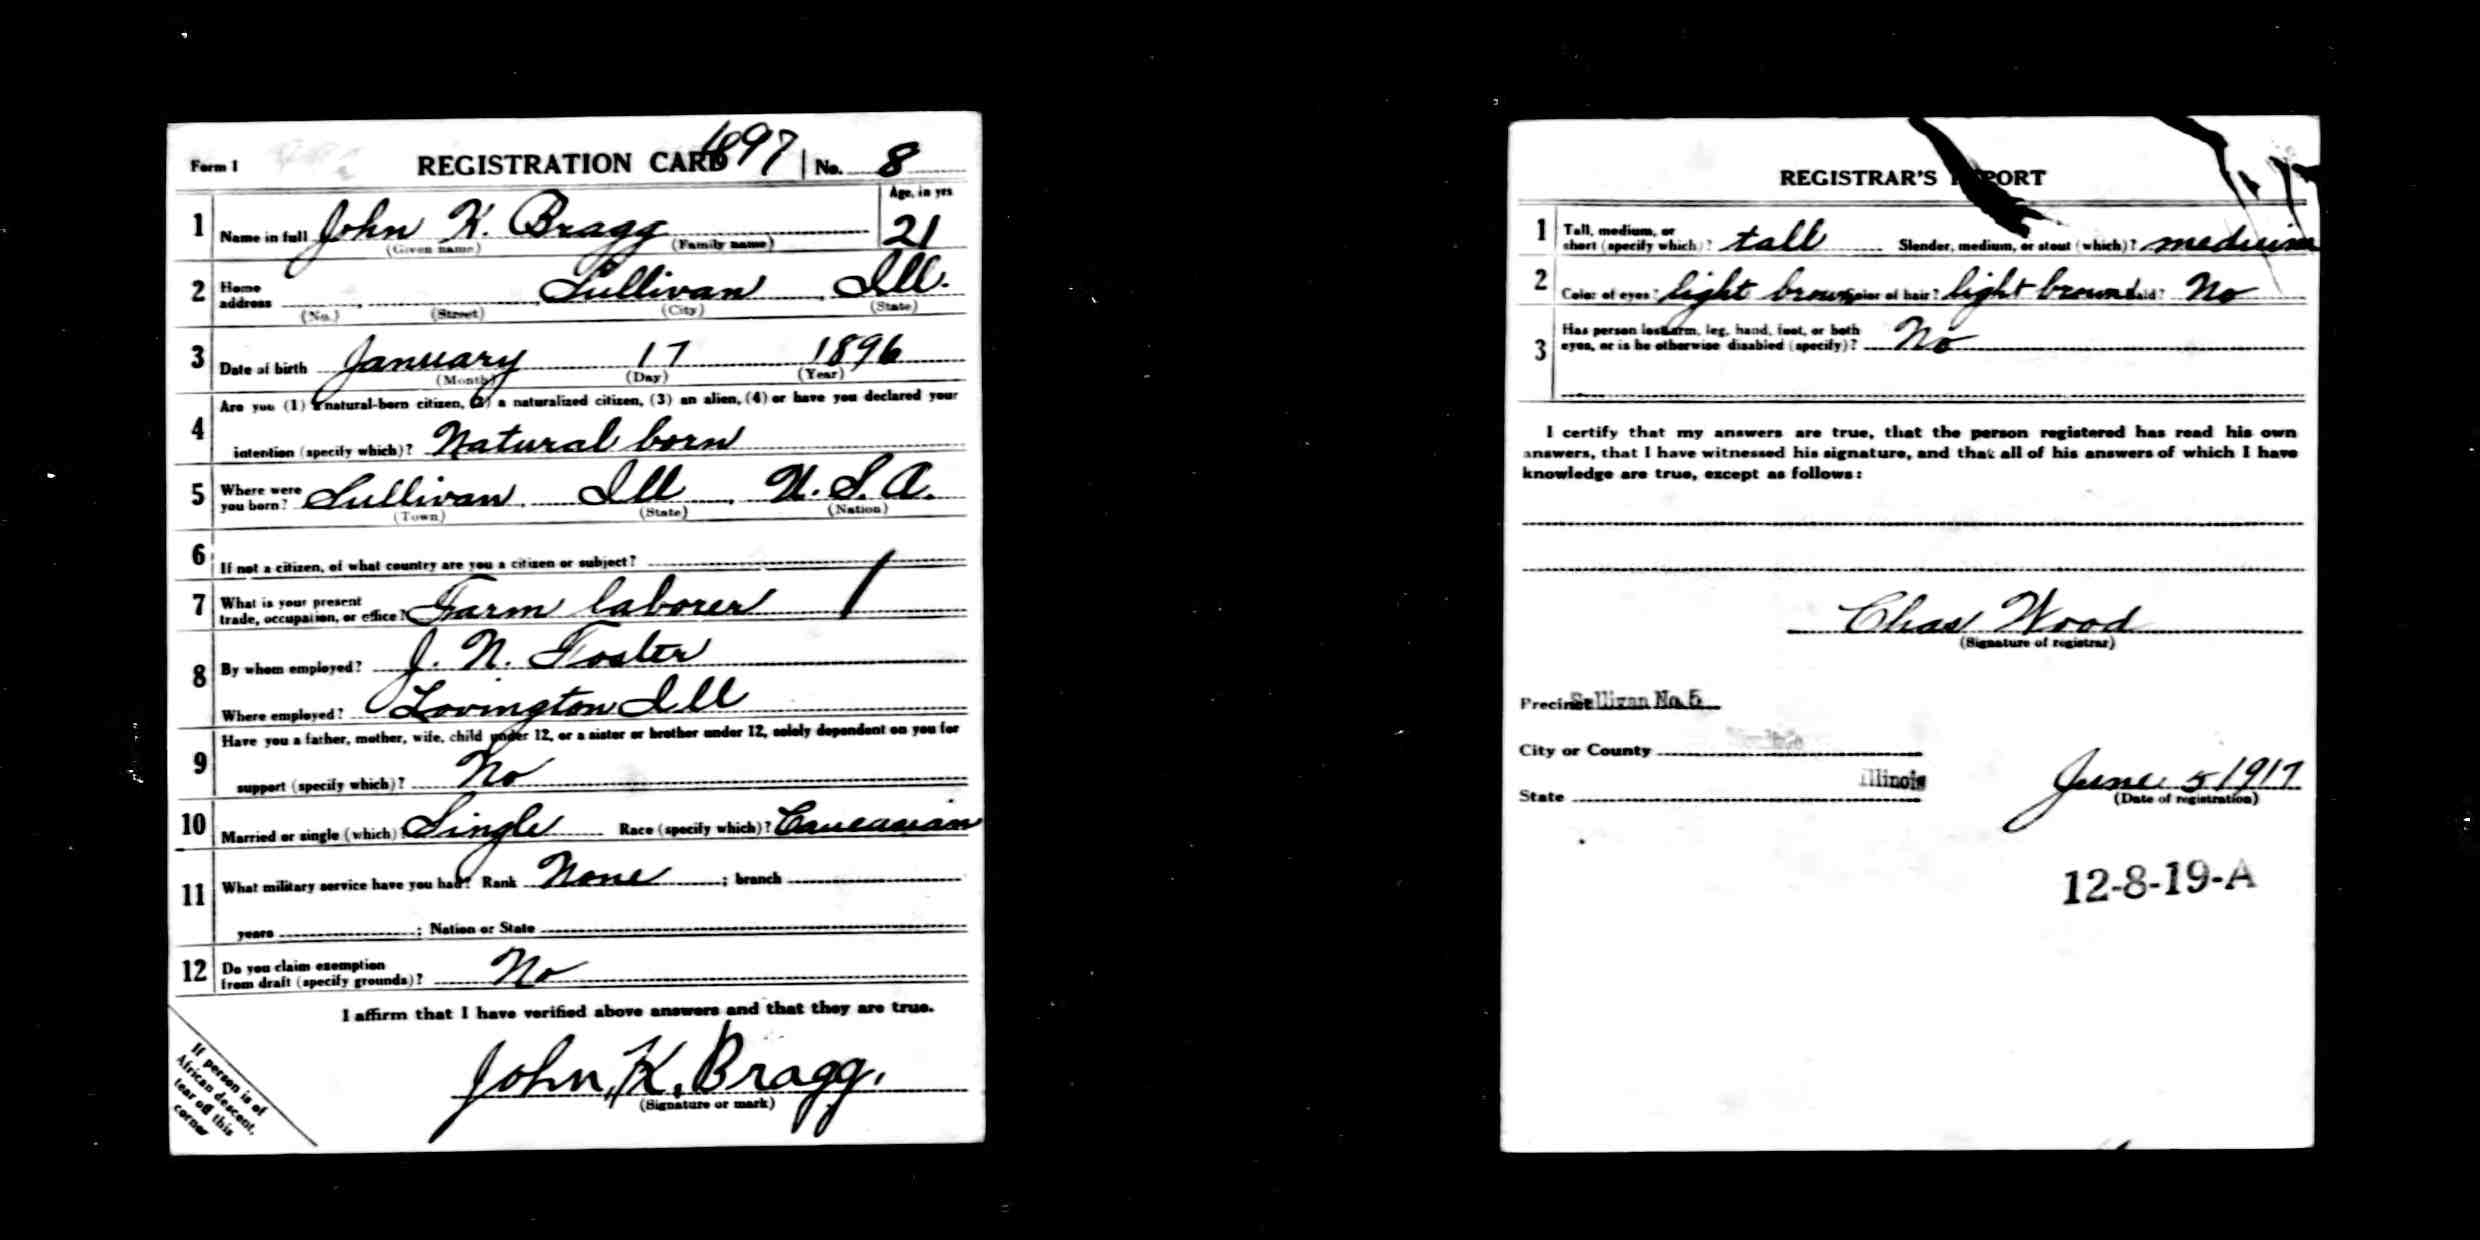 Form 1 REGISTRATION CARD 1897 No. 8
Age, in yrs
1 Name in full John K. Bragg 21
(Given name) (Family name)
2 Home address Sullivan Ill.
(No.) (Street) (City) (State)
3 Date of birth January 17 1896
(Month) (Day) (Year)
Are you (1) a natural-born citizen, (2) a naturalized citizen, (3) an alien, (4) or have you declared your
4 intention (specify which)? Natural born
5 Where were you born? Sullivan, Ill, U.S.A.
(Town) (State) (Nation)
6 If not a citizen, of what country are you a citizen or subject?
7 What is your present trade, occupation, or office? Farm laborer
8 By whom employed? J. N. Foster
Where employed? Lovington Ill
Have you a father, mother, wife, child under 12, or a sister or brother under 12, solely dependent on you for
9 support (specify which)? No
10 Married or single (which)? Single Race (specify which)? Caucasian
11 What military service have you had? Rank None ; branch
years ; Nation or State
12 Do you claim exemption from draft (specify grounds)? No
I affirm that I have verified above answers and that they are true.
John, K, Bragg,
(Signature or mark)
If person is of
African descent,
tear off this
corner
REGISTRAR'S REPORT
1 Tall, medium, or short (specify which)? tall Slender, medium, or stout (which)? medium
2 Color of eyes? light brown Color of hair? light brown Bald? No
3 Has person lost arm, leg, hand, foot, or both
eyes, or is he otherwise disabled (specify)? No
I certify that my answers are true, that the person registered has read his own
answers, that I have witnessed his signature, and that all of his answers of which I have
knowledge are true, except as follows:
Chas Wood
(Signature of registrar)
Precinct Sullivan No. 5
City or County
State Illinois
June 5 1917
(Date of registration)
12-8-19-A